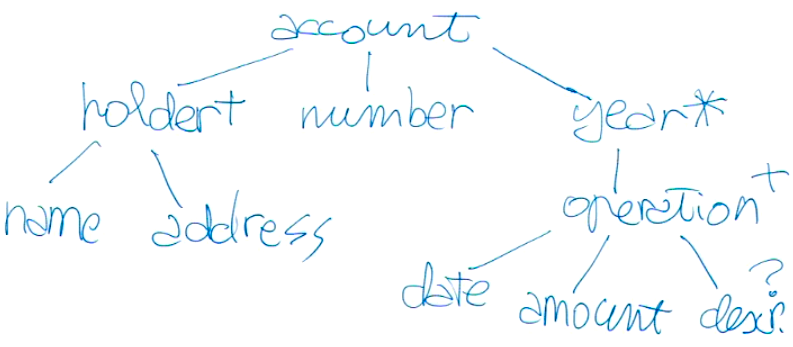 account
holder+ number year*
name address operation+
date amount descr.?